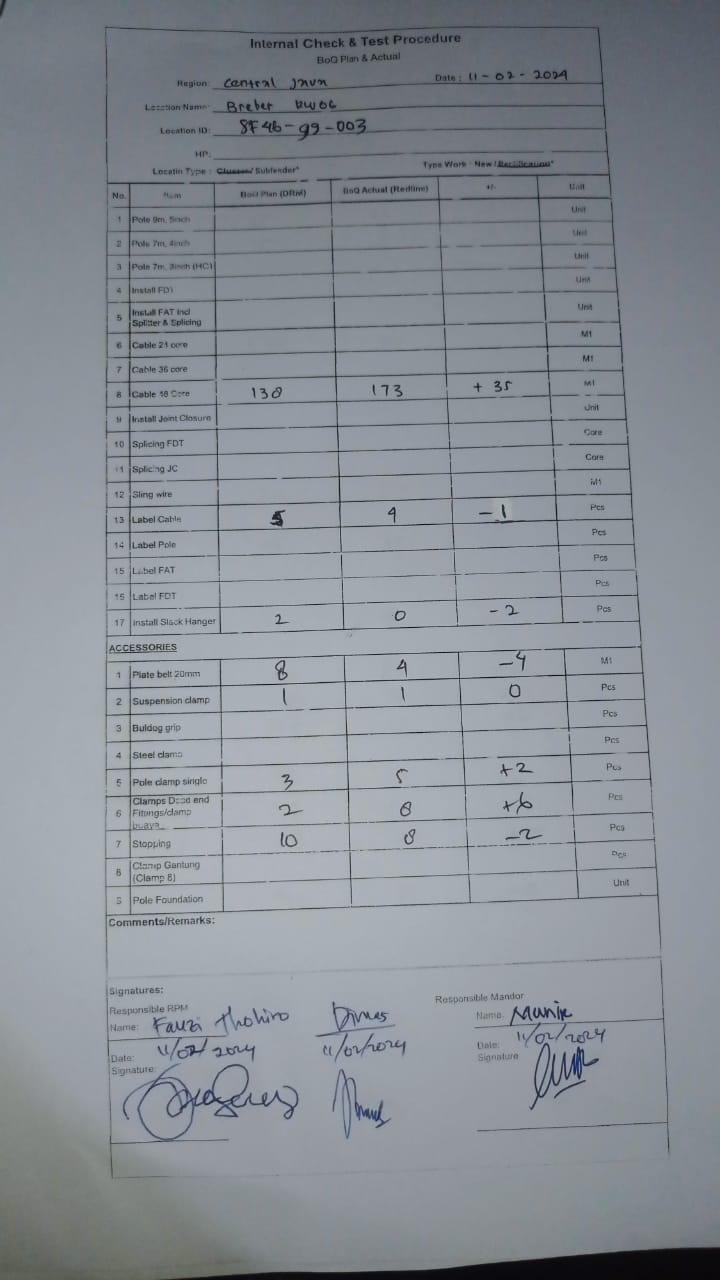 Internal Check & Test Procedure
BoQ Plan & Actual
Region: Central Java Date : 11-02-2024
Location Name: Breber RW06
Location ID: SF46-99-003
HP:
Locatin Type : Cluster/ Subfeeder* Type Work : New / Rectification*
No. Item BoQ Plan (DRM) BoQ Actual (Redline) +/- Unit
1 Pole 9m, 5inch Unit
2 Pole 7m, 4inch Unit
3 Pole 7m, 3inch (HC) Unit
4 Install FDT Unit
5 Install FAT Incl Splitter & Splicing Unit
6 Cable 21 core M1
7 Cable 36 core M1
8 Cable 48 Core 138 173 + 35 M1
9 Install Joint Closure Unit
10 Splicing FDT Core
11 Splicing JC Core
12 Sling wire M1
13 Label Cable 5 4 -1 Pcs
14 Label Pole Pcs
15 Label FAT Pcs
16 Label FDT Pcs
17 Install Slack Hanger 2 0 -2 Pcs
ACCESSORIES
1 Plate belt 20mm 8 4 -4 M1
2 Suspension clamp 1 1 0 Pcs
3 Buldog grip Pcs
4 Steel clamp Pcs
5 Pole clamp single 3 5 +2 Pcs
6 Clamps Dead end Fitings/clamp buaya 2 8 +6 Pcs
7 Stopping 10 8 -2 Pcs
8 Clamp Gantung (Clamp 8) Pcs
9 Pole Foundation Unit
Comments/Remarks:
Signatures:
Responsible RPM Responsible Mandor
Name: Fauzi Thohiro Dimas Name:
Date: 11/02/2024 11/02/2024 Date: 11/02/2024
Signature: Signature